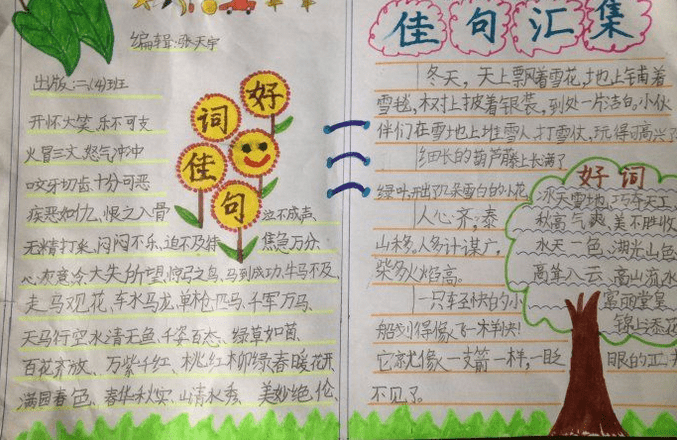 编辑:张天宇
出版:二、(4)班
好
词
佳
句
开怀大笑、乐不可支
火冒三丈、怒气冲冲
咬牙切齿、十分可恶
疾恶如仇、恨之入骨 泣不成声、
无精打采、闷闷不乐、迫不及待 焦急万分、
心灰意冷、大失所望、惊弓之鸟、马到成功、牛马不及、
走马观花、车水马龙、单枪匹马、千军万马、
天马行空、水清无鱼、千姿百态、绿草如茵、
百花齐放、万紫千红、桃红柳绿、春暖花开、
满园春色、春华秋实、山清水秀、美妙绝伦、
佳句汇集
冬天,天上飘着雪花,地上铺着
雪毯,树上披着银装,到处一片洁白,小伙
伴们在雪地上堆雪人,打雪仗,玩得可高兴了
细长的葫芦藤上长满了
绿叶,开出了几朵雪白的小花
人心齐,泰
山移。人多计谋广,
柴多火焰高。
一只轻快的小
船划得像飞一样
它就像一支箭一样,一眨 眼的工夫
不见了。
好词
冰天雪地、巧夺天工
秋高气爽、美不胜收
水天一色、湖光山色
高耸入云、高山流水
富丽堂皇
锦上添花